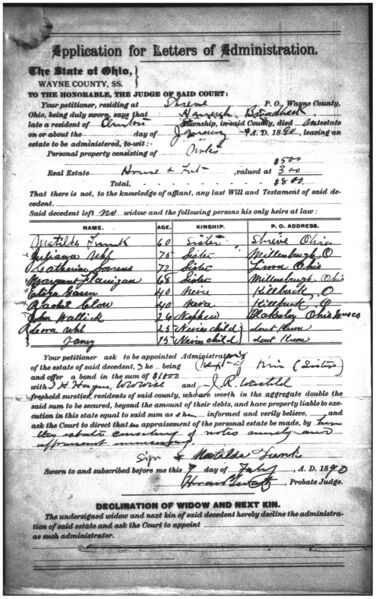 Application for Letters of Administration.
The State of Ohio,
WAYNE COUNTY, SS.
TO THE HONORABLE, THE JUDGE OF SAID COURT:
Your petitioner, residing at Shreve P. O., Wayne County,
Ohio, being duly sworn, says that Hannah
late a resident of Clinton Township, in said County, died intestate
on or about the day of January A. D. 1890, leaving an
estate to be administered, to-wit:
Personal property consisting of Notes
$500
Real Estate House & Lot, valued at 300
Total, $800
That there is not, to the knowledge of affiant, any last Will and Testament of said de-
cedent.
Said decedent left no widow and the following persons his only heirs at law:
NAME. AGE. KINSHIP. P. O. ADDRESS.
Matilda Funk 60 Sister Shreve Ohio
Juliana Uhl 75 Sister Millersburgh O
Catherine 72 Sister Lima Ohio
Margaret Flanigan 68 Sister Millersburgh Ohio
Eliza 40 Neice Killbuck, O
Rachel Clow 40 Neice Killbuck O
John Hallick 26 Nephew Blakesley Ohio
Uhl 25 Neices child dont know
Jany 15 Neices child dont know
Your petitioner ask to be appointed Administrator
of the estate of said decedent, he being Next of Kin (Sister)
and offer a bond in the sum of $1600
with J. R.
freehold suretied, residents of said county, who are worth in the aggregate double the
said sum to be secured, beyond the amount of their debts, and have property liable to exe-
cution in this state equal to said sum as she informed and verily believe, and
ask the Court to direct that no appraisement of the personal estate be made, by him
the estate consisting of notes and
appraisment unnecessary.
Sign Matilda Funk
Sworn to and subscribed before me this 7 day of July, A. D. 1890
Probate Judge.
DECLINATION OF WIDOW AND NEXT KIN.
The undersigned widow and next kin of said decedent hereby decline the admin-
istration of said estate and ask the Court to appoint
as such administrator.